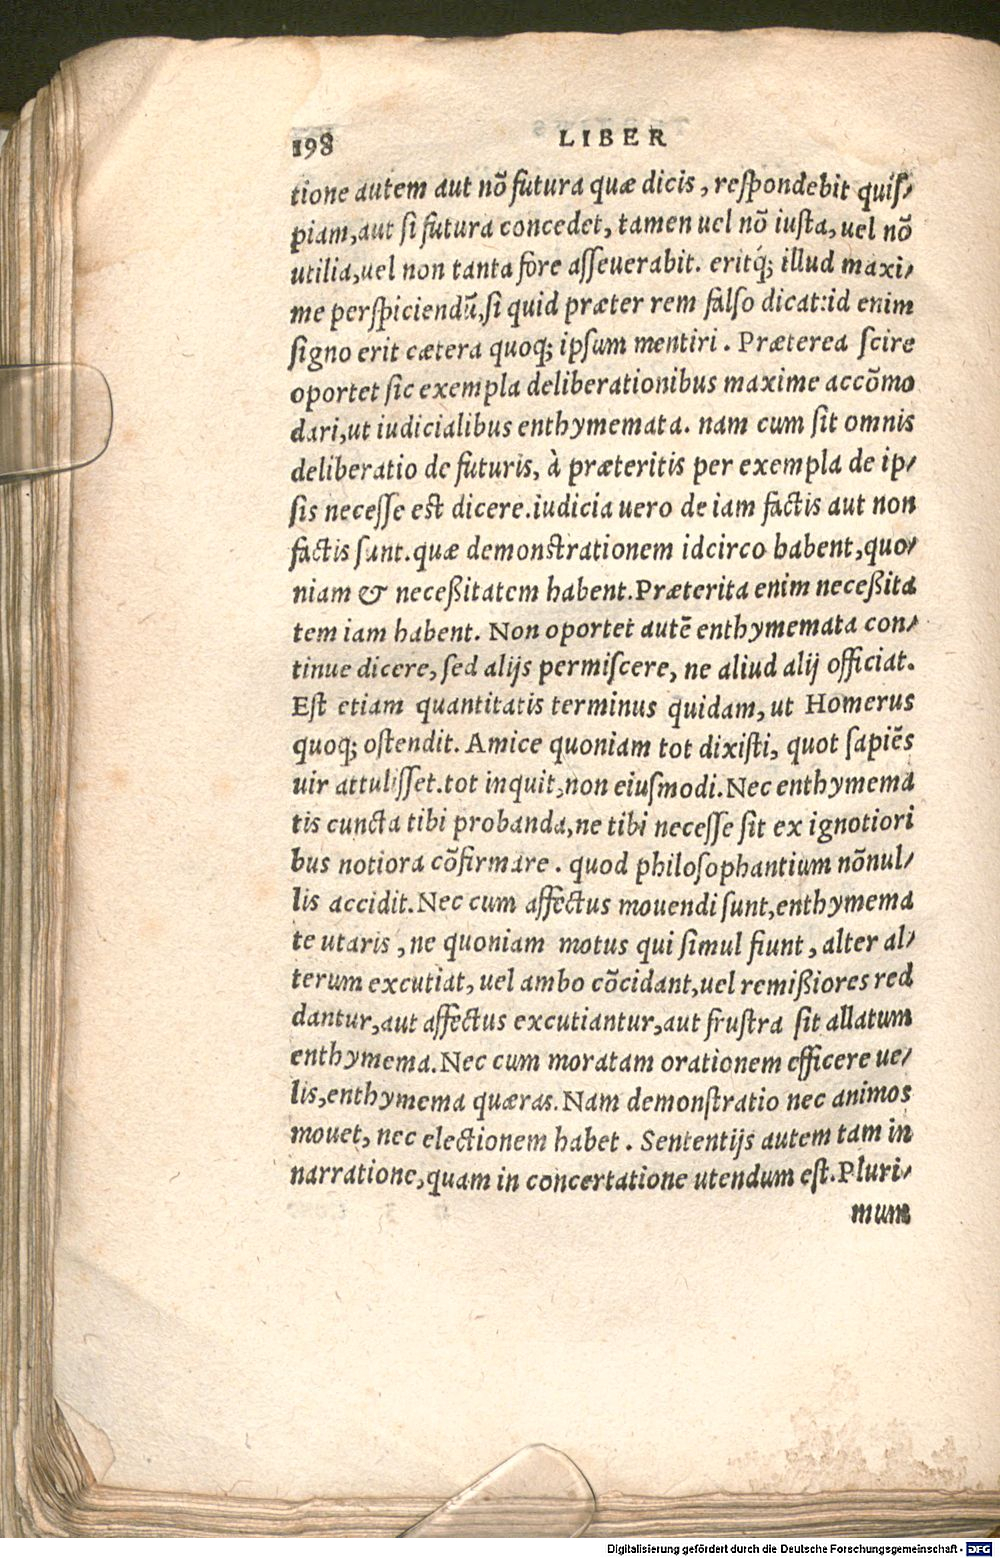 198 LIBER
tione autem aut nõ futura quæ dicis, respondebit quis-
piam, aut si futura concedet, tamen uel nõ iusta, uel nõ
utilia, uel non tanta fore asseuerabit. eritq́; illud maxi-
me perspiciendũ, si quid præter rem falso dicat: id enim
signo erit cætera quoq; ipsum mentiri. Præterea scire
oportet sic exempla deliberationibus maxime accõmo
dari, ut iudicialibus enthymemata. nam cum sit omnis
deliberatio de futuris, à præteritis per exempla de ip-
sis necesse est dicere. iudicia uero de iam factis aut non
factis sunt. quæ demonstrationem idcirco habent, quo-
niam & neceßitatem habent. Præterita enim neceßita
tem iam habent. Non oportet autẽ enthymemata con-
tinue dicere, sed alijs permiscere, ne aliud alij officiat.
Est etiam quantitatis terminus quidam, ut Homerus
quoq; ostendit. Amice quoniam tot dixisti, quot sapiẽs
uir attulisset. tot inquit, non eiusmodi. Nec enthymema
tis cuncta tibi probanda, ne tibi necesse sit ex ignotiori
bus notiora cõfirmare. quod philosophantium nõnul-
lis accidit. Nec cum affectus mouendi sunt, enthymema
te utaris, ne quoniam motus qui simul fiunt, alter al-
terum excutiat, uel ambo cõcidant, uel remißiores red
dantur, aut affectus excutiantur, aut frustra sit allatum
enthymema. Nec cum moratam orationem efficere ue-
lis, enthymema quæras. Nam demonstratio nec animos
mouet, nec electionem habet. Sententijs autem tam in
narratione, quam in concertatione utendum est. Pluri-
mum
Digitalisierung gefördert durch die Deutsche Forschungsgemeinschaft - DFG